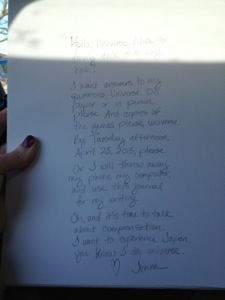 Hello, Universe. Nice to
I want answers to my
questions Universe. On
paper or in person,
please. And copies of
the emails please, universe.
By Tuesday afternoon,
April 23, 2013, please.
Or I will throw away
my phone, my computer,
and use this journal
for my writing.
Oh, and it's time to talk
about compensation.
I want to experience
you know I do, universe.
♡